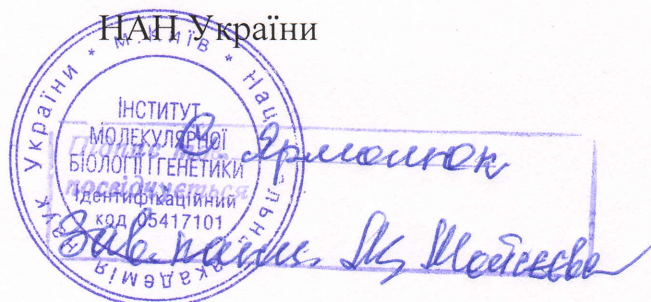 НАН України
м. Київ * Національна академія наук України *
ІНСТИТУТ
МОЛЕКУЛЯРНОЇ
БІОЛОГІЇ І ГЕНЕТИКИ
Ідентифікаційний
код 05417101
Підпис
посвідчується
Ярмолюк
Зав. канц.